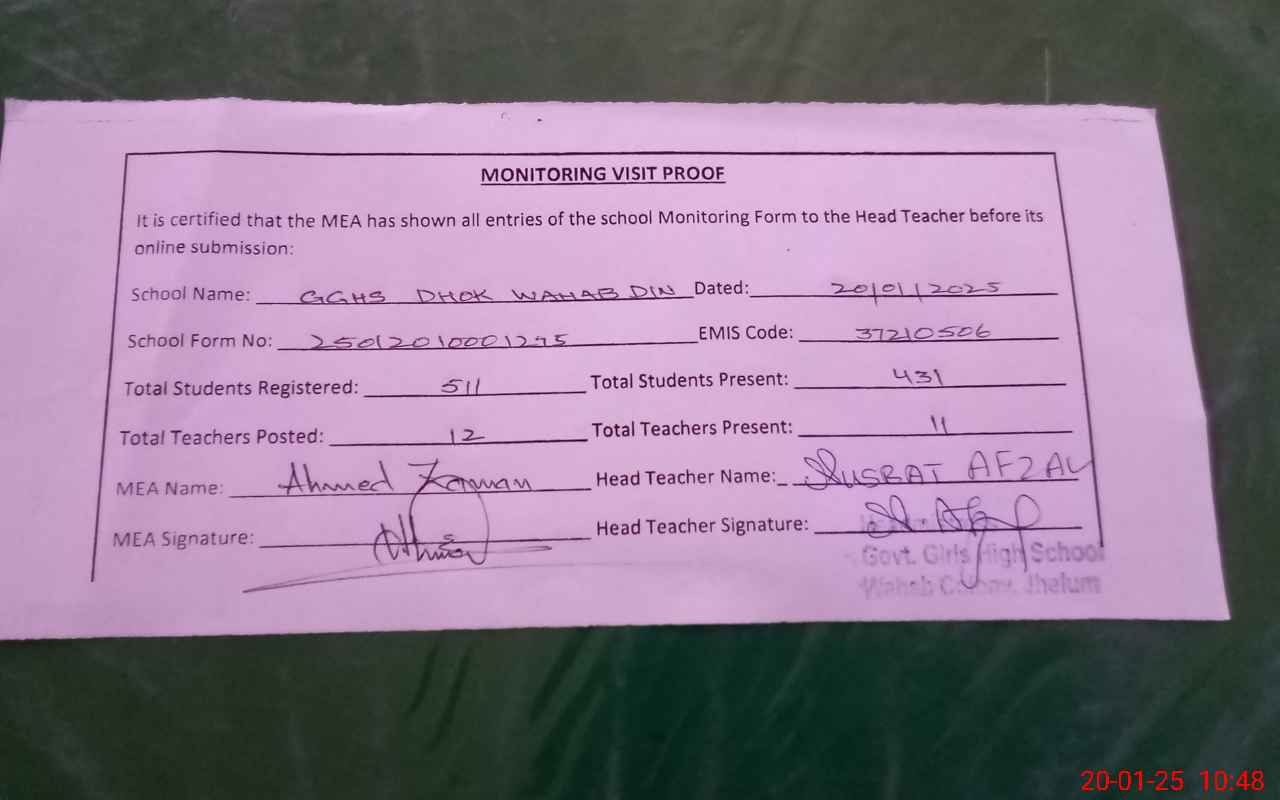 MONITORING VISIT PROOF
It is certified that the MEA has shown all entries of the school Monitoring Form to the Head Teacher before its
online submission:
School Name: GGHS DHOK WAHAB DIN Dated: 20/01/2025
School Form No: 25012010001295 EMIS Code: 37210506
Total Students Registered: 511 Total Students Present: 431
Total Teachers Posted: 12 Total Teachers Present: 11
MEA Name: Ahmed Zaman Head Teacher Name: NUSRAT AFZAL
MEA Signature: Head Teacher Signature:
Govt. Girls High School
Wahab Colony, Jhelum
20-01-25 10:48